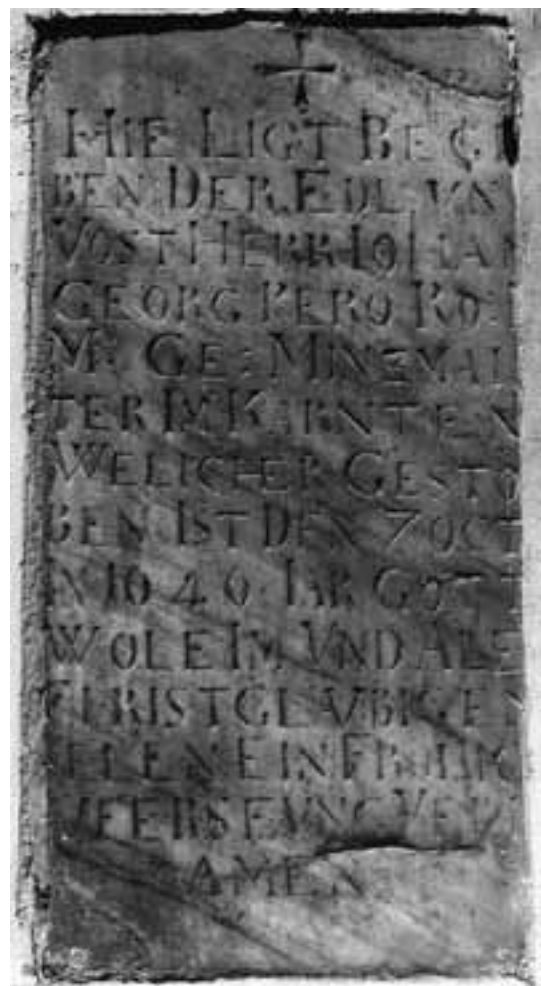 HIE LIGT BEGR
BEN DER EDL VN
VOST HERR IOHAN
GEORG PERO RO:
M: GE: MINZMAI
TER IN KÆRNTEN
WELICHER GESTO
BEN IST DEN 7 OCT
IN 1640 IAR GOTT
WOLE IM VND ALE
CHRISTGLAVBIGEN
EIN FROLIM
VFERSEVNG VER
AMEN